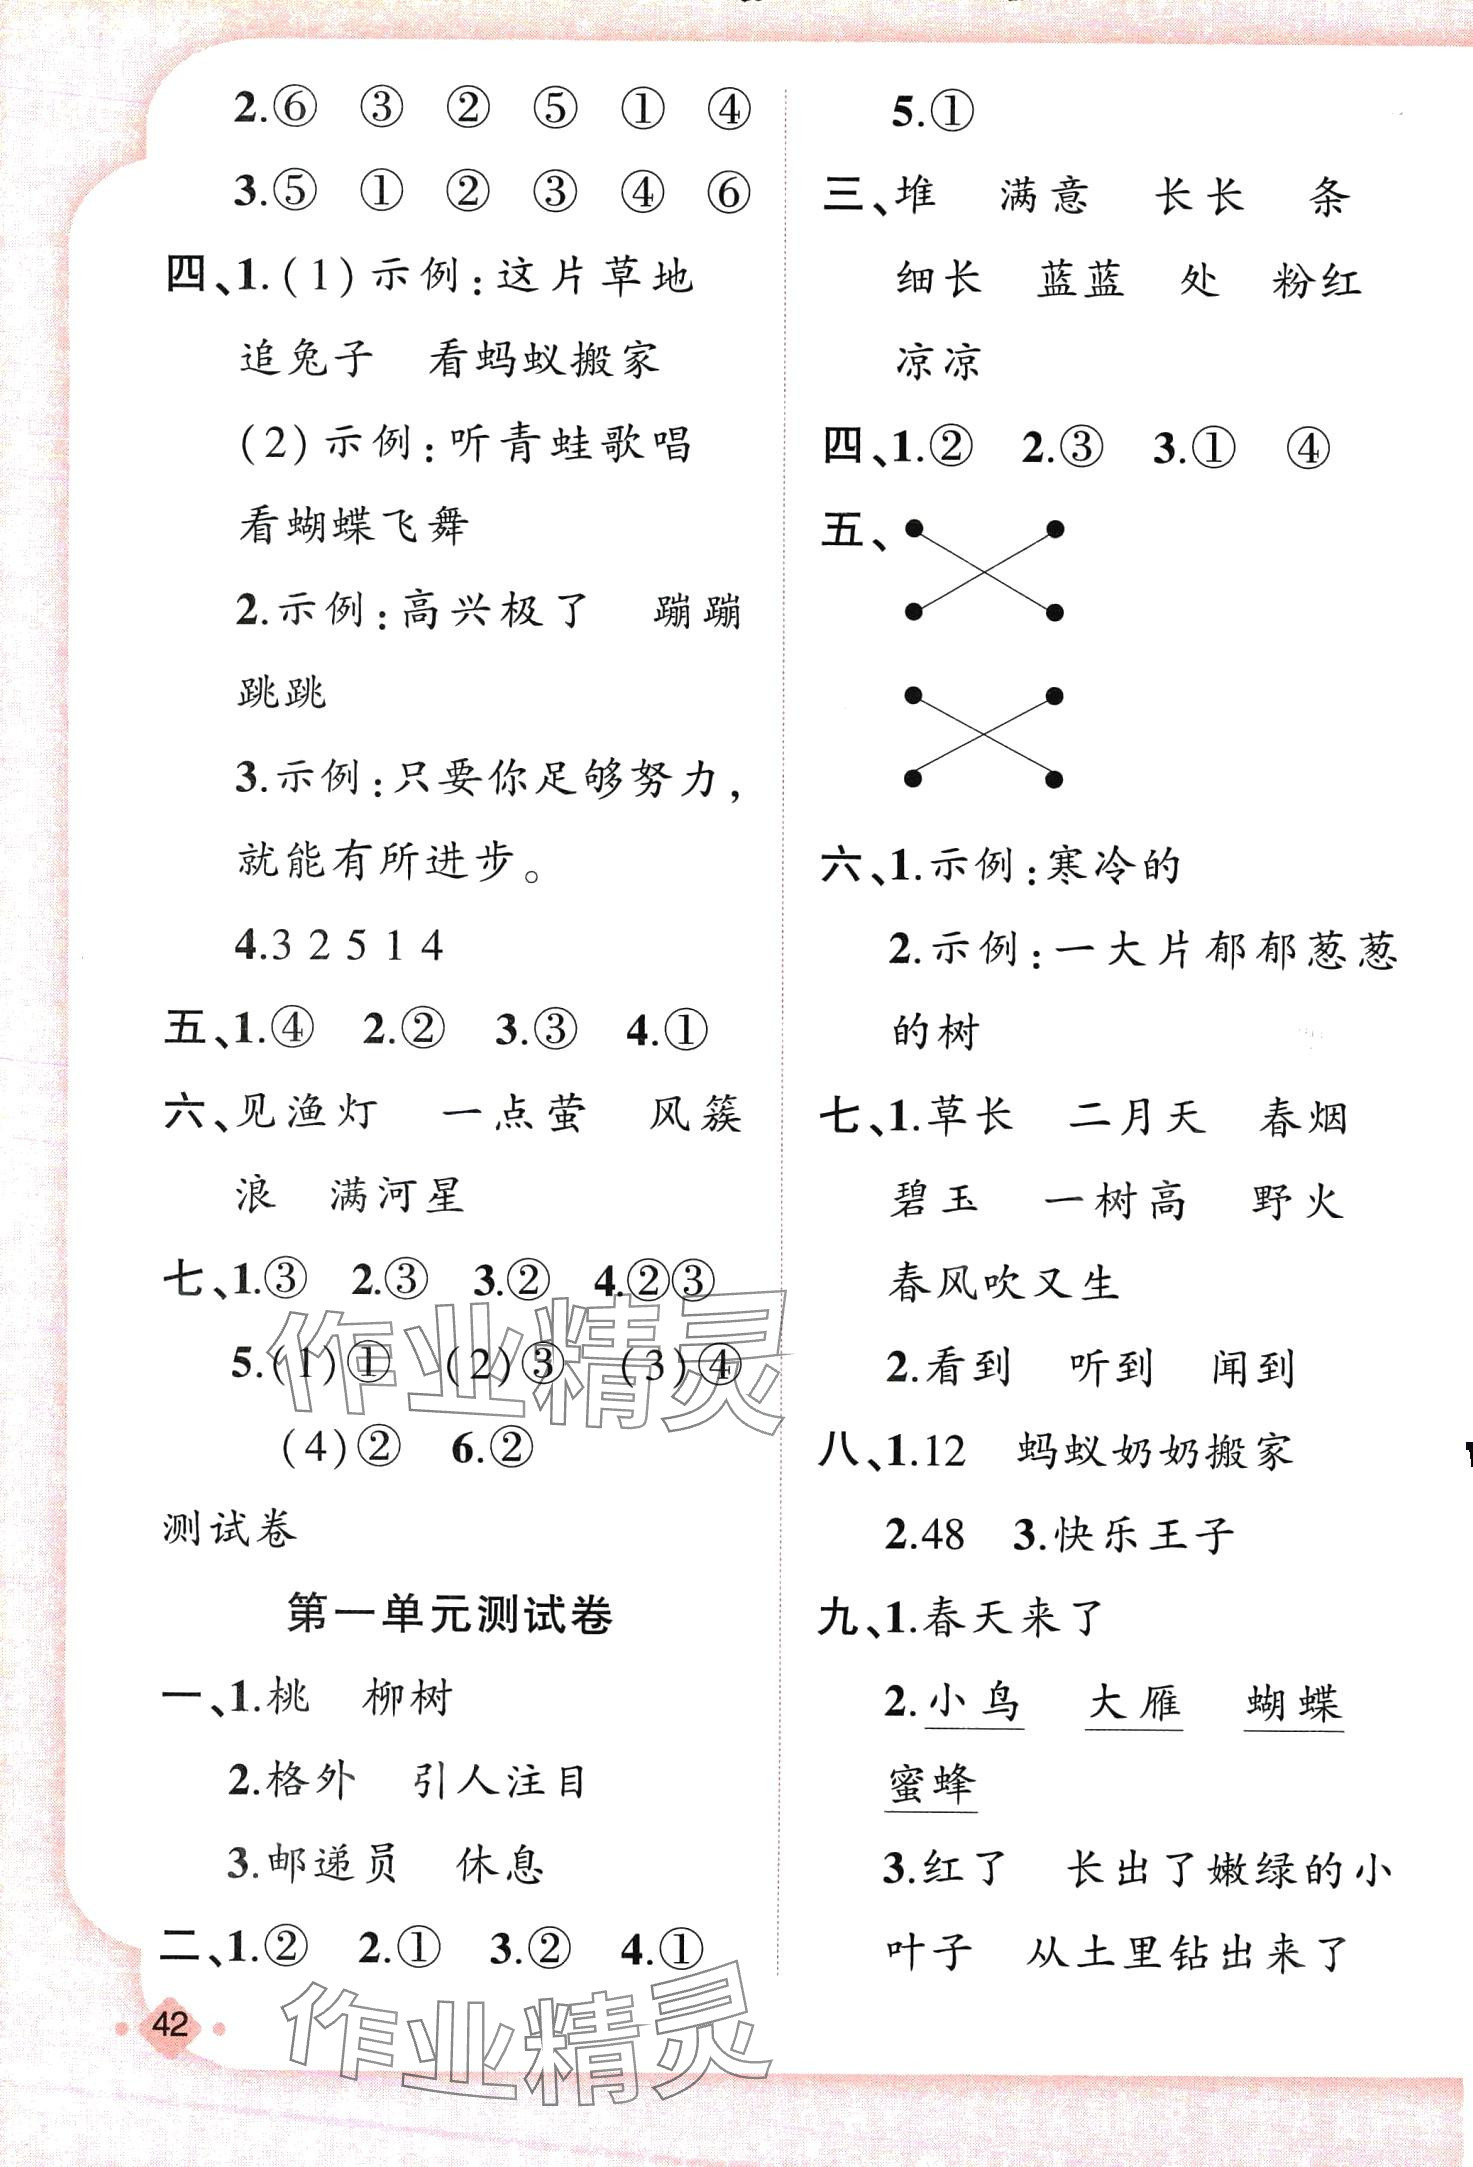 2.⑥ ③ ② ⑤ ① ④
3.⑤ ① ② ③ ④ ⑥
四、1.(1)示例:这片草地
追兔子 看蚂蚁搬家
(2)示例:听青蛙歌唱
看蝴蝶飞舞
2.示例:高兴极了 蹦蹦
跳跳
3.示例:只要你足够努力,
就能有所进步。
4.3 2 5 1 4
五、1.④ 2.② 3.③ 4.①
六、见渔灯 一点萤 风簇
浪 满河星
七、1.③ 2.③ 3.② 4.②③
5.(1)① (2)③ (3)④
(4)② 6.②
测试卷
第一单元测试卷
一、1.桃 柳树
2.格外 引人注目
3.邮递员 休息
二、1.② 2.① 3.② 4.①
5.①
三、堆 满意 长长 条
细长 蓝蓝 处 粉红
凉凉
四、1.② 2.③ 3.① ④
五、
六、1.示例:寒冷的
2.示例:一大片郁郁葱葱
的树
七、1.草长 二月天 春烟
碧玉 一树高 野火
春风吹又生
2.看到 听到 闻到
八、1.12 蚂蚁奶奶搬家
2.48 3.快乐王子
九、1.春天来了
2.小鸟 大雁 蝴蝶
蜜蜂
3.红了 长出了嫩绿的小
叶子 从土里钻出来了
42
作业精灵
作业精灵